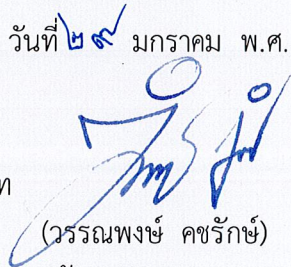 วันที่ ๒๙ มกราคม พ.ศ.
(วรรณพงษ์ คชรักษ์)